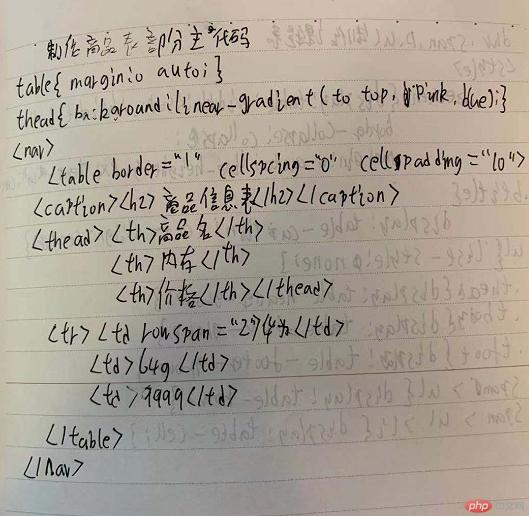 制作商品表部分主代码
table{ margin:0 auto;}
thead{ background:linear-gradient(to top, pink, blue);}
<nav>
<table border="1" cellspcing="0" cellspadding="10">
<caption><h2>商品信息表</h2></caption>
<thead> <th>商品名</th>
<th>内存</th>
<th>价格</th></thead>
<tr> <td rowspan="2">华为</td>
<td>64g</td>
<td>9999</td>
</table>
</nav>
php